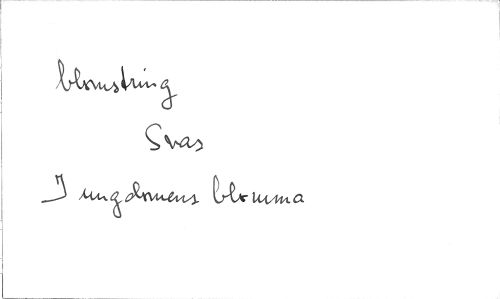 blomstring
Svas
I ungdomens blomma